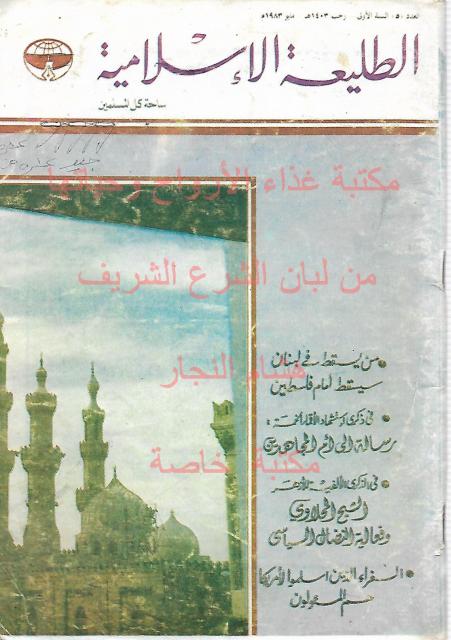 العدد «٥» السنة الأولى رجب ١٤٠٣هـ مايو ١٩٨٣م
الطليعة الإسلامية
ساحة كل المسلمين
مكتبة غذاء الأرواح وحياتها
من لبان الشرع الشريف
من يسقط في لبنان
سيسقط أمام فلسطين
هشام النجار
في ذكرى
رسالة إلى أم المجاهدين
مكتبة خاصة
في الذكرى الألفية للأزهر
الشيخ المحلاوي
وفعالية النضال السياسي
السفراء الذين أسلموا لأمريكا
هم المسئولون